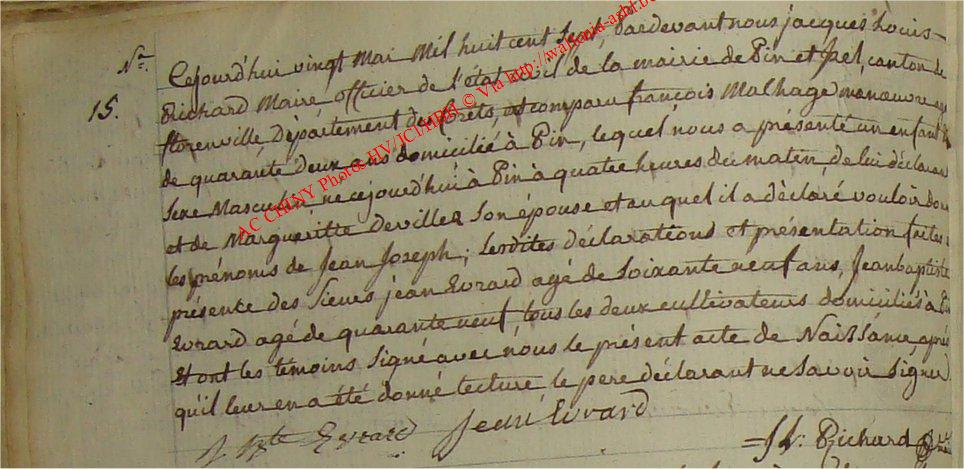 N.o 15.
Cejourd'hui vingt Mai Mil huit cent Sept, pardevant nous jacques Louis
Richard Maire, officier de l'état civil de la mairie de Pin et Izel, canton de
florenville, Département des forêts, est comparu françois Malhage manœuvre agé
de quarante deux ans domicilié à Pin, lequel nous a présenté un enfant du
Sexe Masculin né cejourd'hui à Pin à quatre heures du matin, de lui déclarant
et de Margueritte Devillez Son épouse et auquel il a déclaré vouloir donner
les prénoms de Jean Joseph; Lesdites déclarations et présentation faites en
présence des Sieurs jean Evrard agé de Soixante neuf ans, Jean baptiste
Evrard agé de quarante neuf, tous les deux cultivateurs domiciliés à Pin
Et ont les témoins Signé avec nous le présent acte de Naissance, après
qu'il leur en a été donné lecture le pere déclarant ne Savoir Signer
J Bte Evrard Jean Evrard
J L: Richard
AC CHINY Photos HV/JCI/HBN © Via http://wallonia-asbl.be